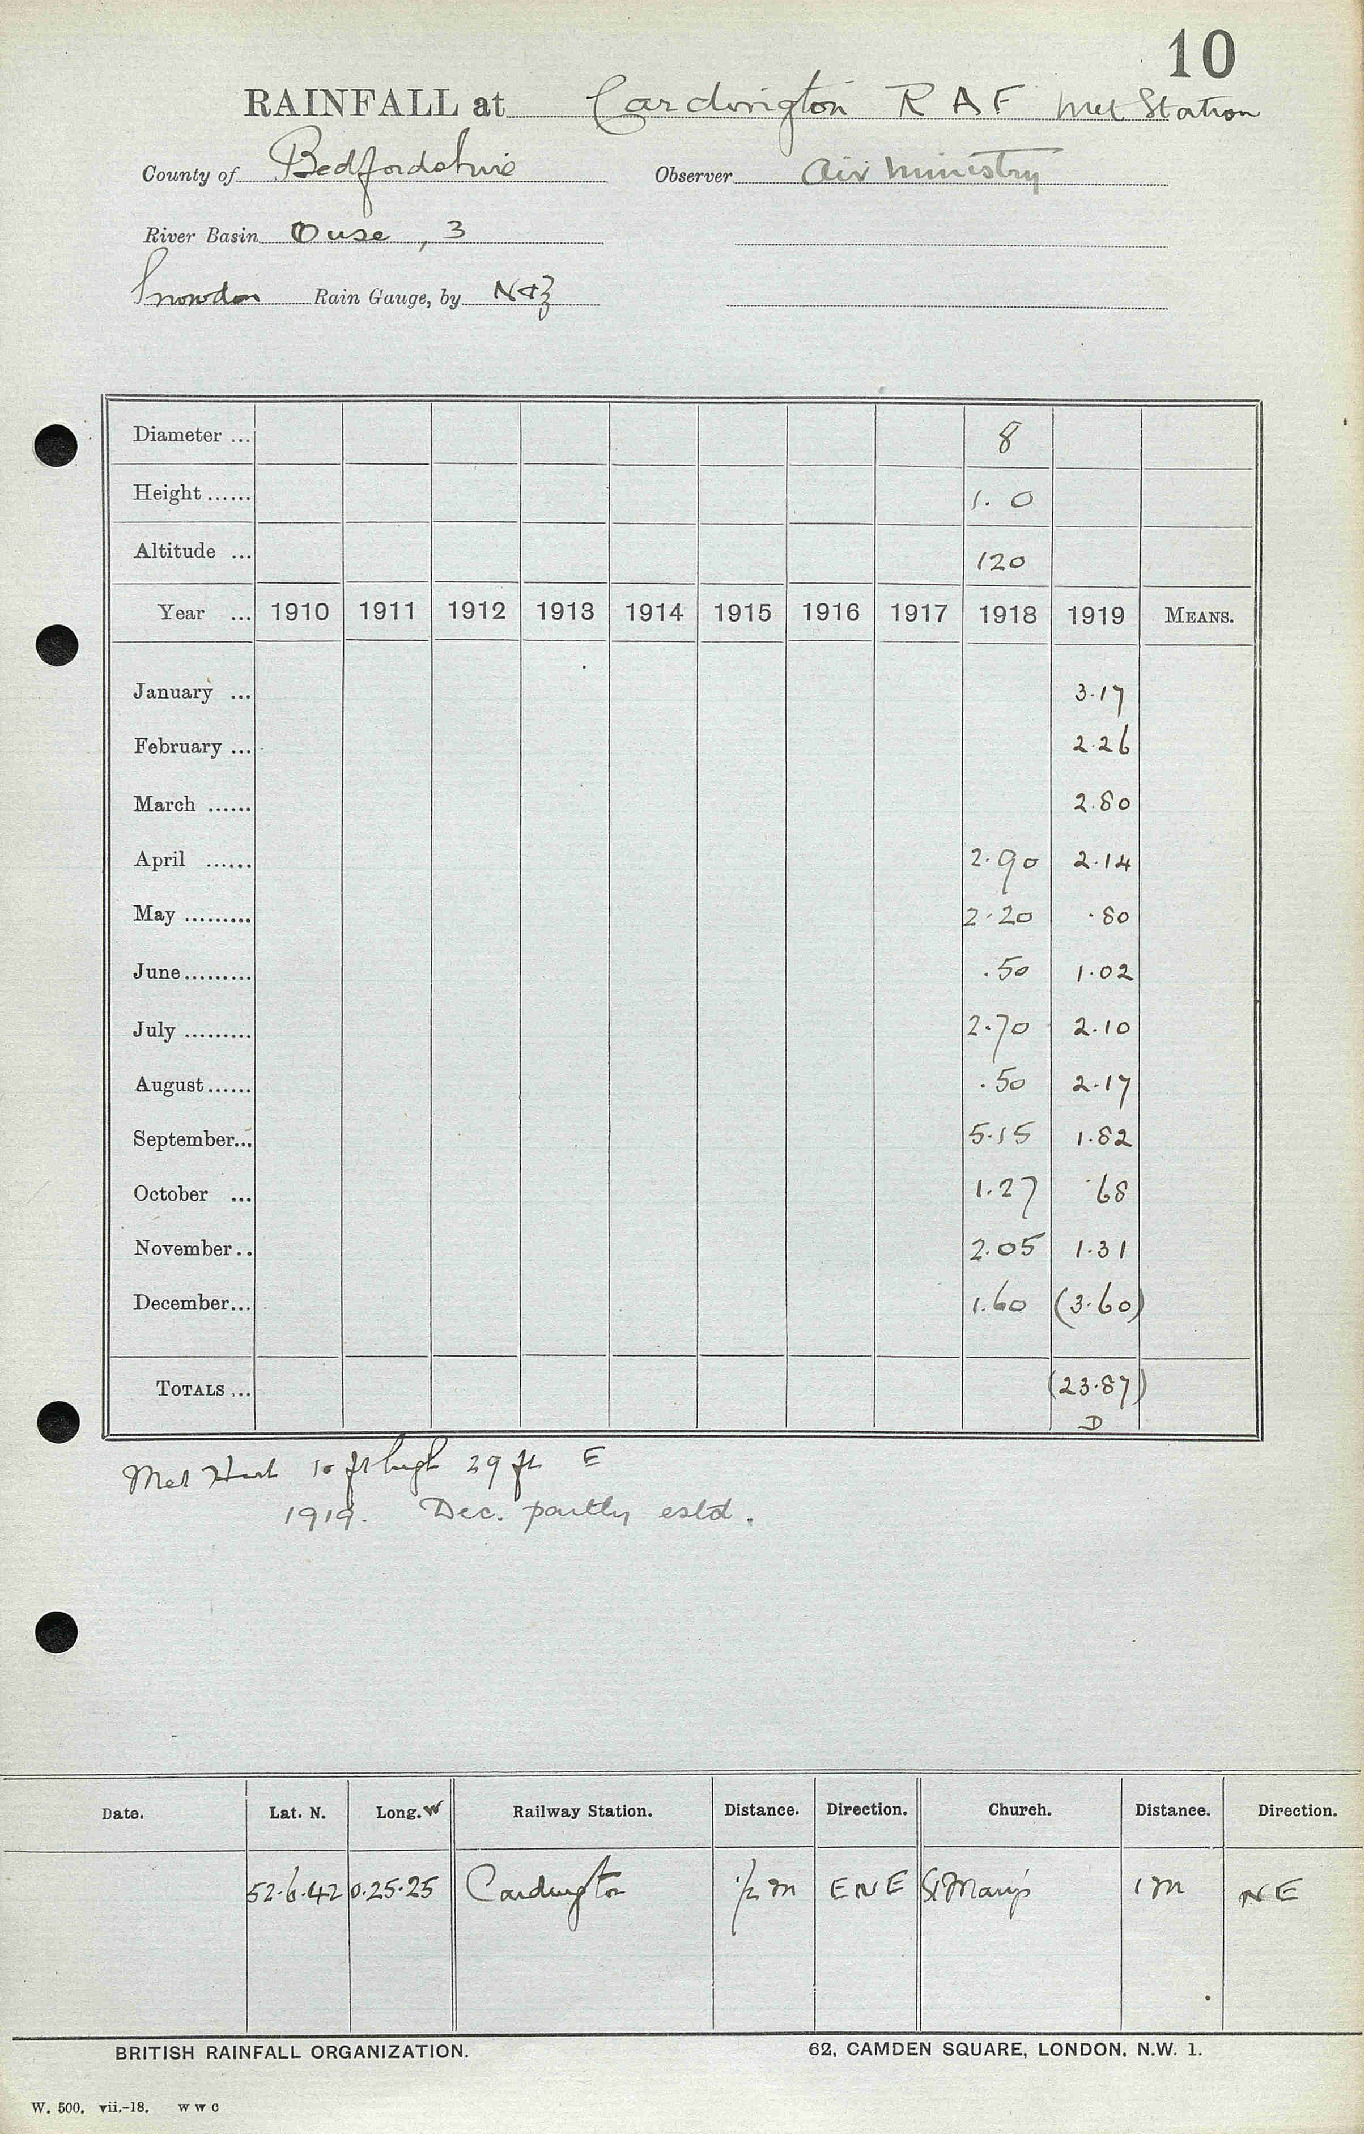 10
RAINFALL at Cardington R A F Met Station
County of Bedfordshire Observer Air Ministry
River Basin Ouse, 3
Snowdon Rain Gauge, by N & Z
Diameter ... 8
Height ...... 1. 0
Altitude ... 120
Year ... 1910 1911 1912 1913 1914 1915 1916 1917 1918 1919 MEANS.
January ... 3.17
February ... 2.26
March ...... 2.80
April ...... 2.90 2.14
May ......... 2.20 .80
June......... .50 1.02
July ......... 2.70 2.10
August...... .50 2.17
September... 5.15 1.82
October ... 1.27 .68
November.. 2.05 1.31
December... 1.60 (3.60)
TOTALS ... (23.87)
D
Met Hut 10 ft high 29 ft E
1919. Dec. partly estd.
Date. Lat. N. Long. W Railway Station. Distance. Direction. Church. Distance. Direction.
52.6.42 0.25.25 Cardington 1/2 m E N E St Mary's 1 m N E
BRITISH RAINFALL ORGANIZATION. 62, CAMDEN SQUARE, LONDON. N.W. 1.
W. 500. vii.-18. w w c